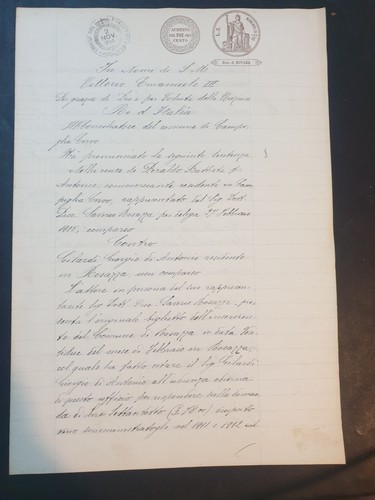 2
NOV
AUMENTO
DEL DIECI PER
CENTO
In Nome di S. M.
Vittorio Emanuele III
Per grazia di Dio e per Volontà della Nazione
Re d'Italia
Il Conciliatore del comune di Campi-
glia Cervo
Ha pronunciato la seguente sentenza
Nella causa de Peraldo Battista fu
Antonio, commerciante residente in Cam-
piglia Cervo, rappresentato dal Sig.
Rosazza per delega 27 Febbraio
comparso
Contro
Gilardi Giorgio di Antonio residente
in Rosazza, non comparso
L'attore in persona del suo rappresen-
tante Sig. Rosazza, pre-
senta l'originale biglietto dell'usciere
del Comune di Rosazza in data Ven-
tidue del mese di Febbraio in Rosazza,
col quale ha fatto citare il Sig. Gilardi
Giorgio di Antonio all'udienza odierna
di questo ufficio per rispondere sulla doman-
da di Lire settantotto (£ 78 00) importo
vino somministratogli nel 1911 e 1912 col